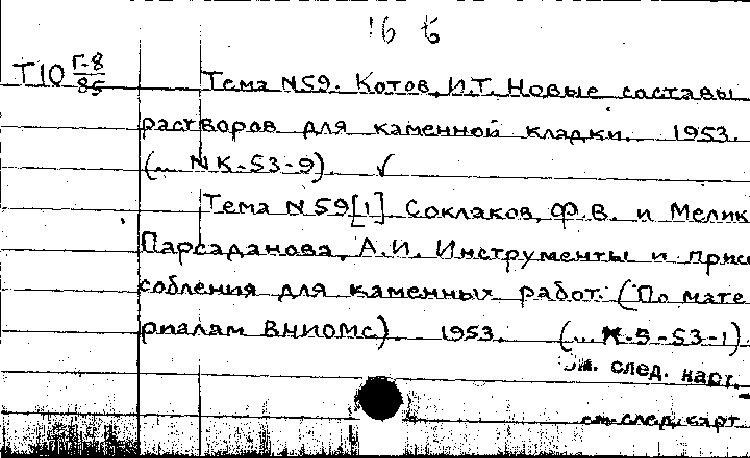 16 б
Т10 Г-8/85
Тема N59. Котов, И.Т. Новые составы
растворов для каменной кладки. 1953.
(... N К-53-9). ✓
Тема N 59[1] Соклаков, Ф.В. и Мелик
Парсаданова, А.И. Инструменты и прис
собления для каменных работ. (По мате
риалам ВНИОМС). 1953. (... К-5-53-1)
см. след. карт.
см. след. карт